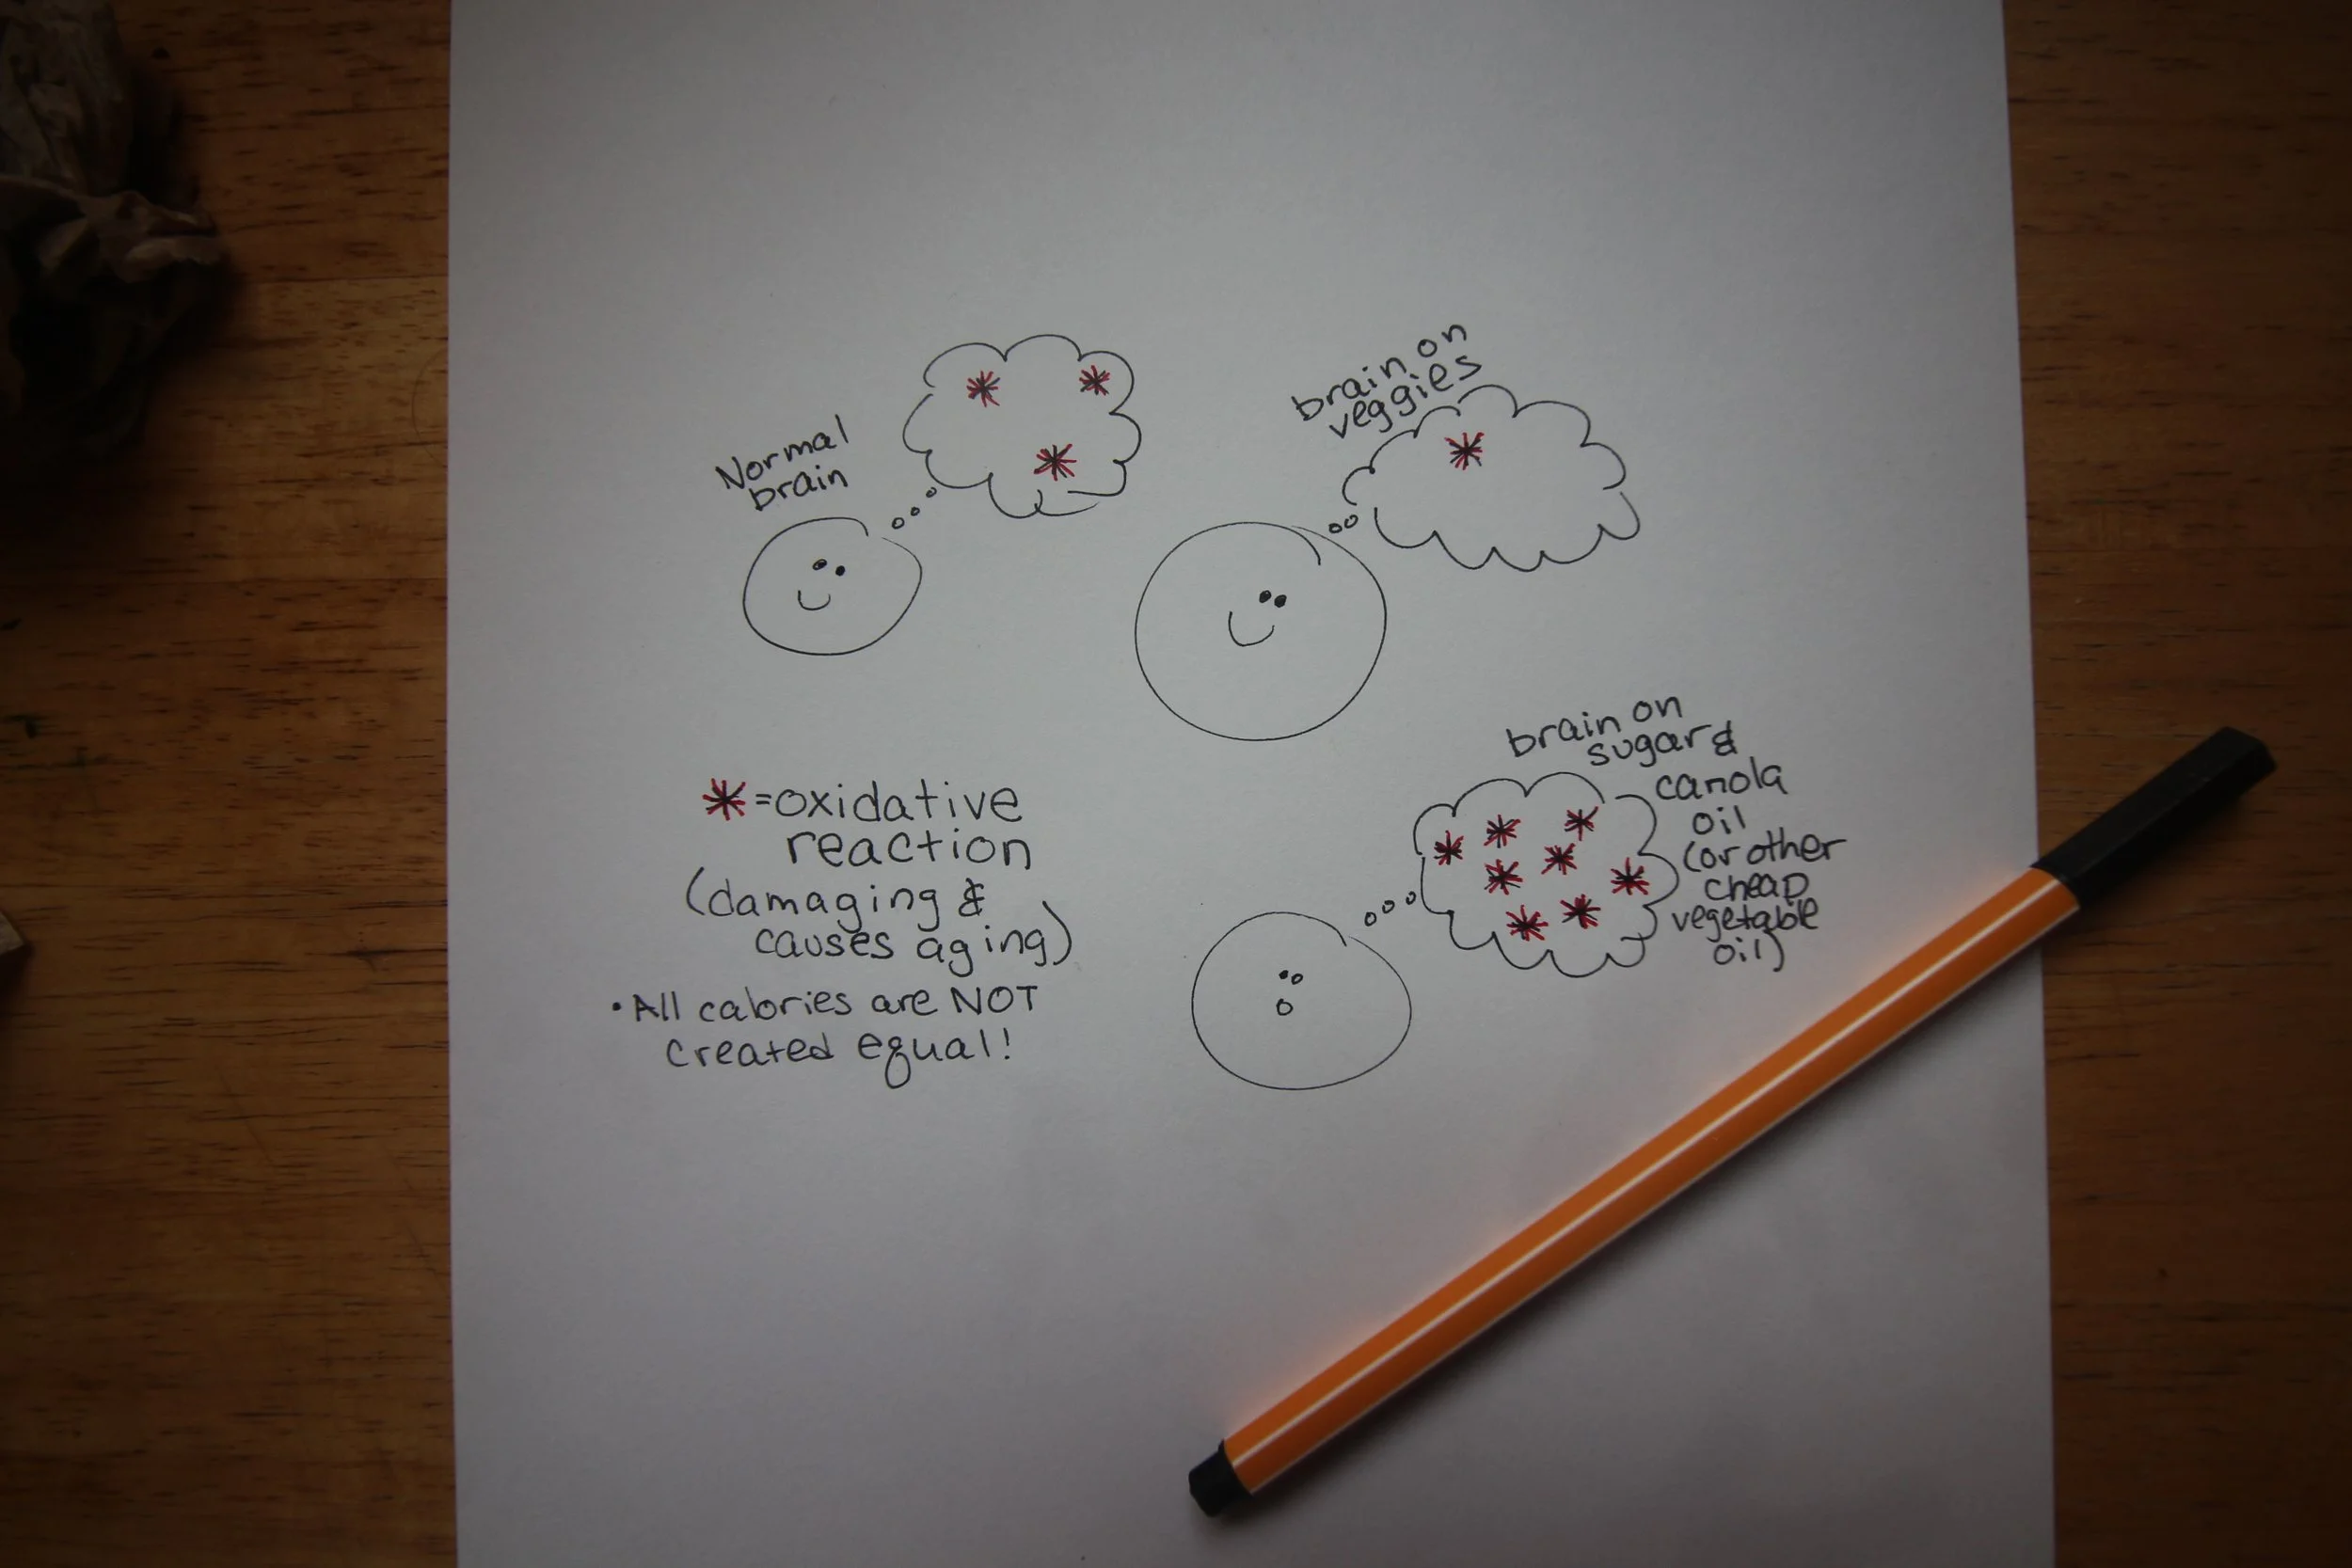 Normal
brain
brain on
veggies
brain on
sugar &
canola
oil
(or other
cheap
vegetable
oil)
* = oxidative
reaction
(damaging &
causes aging)
• All calories are NOT
created equal!